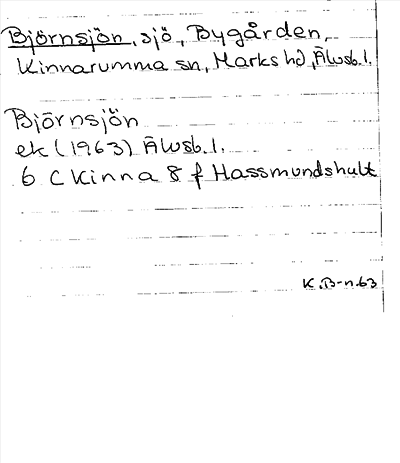 Björnsjön, sjö, Bygården,
Kinnarumma sn, Marks hd, Älvsb. l.
Björnsjön
ek (1963) Älvsb. l.
6 C Kinna 8 f Hassmundshult
K. B-n. 63